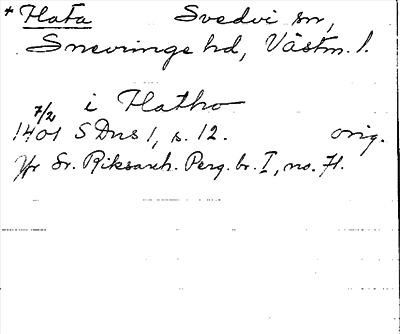 + Hata Svedvi sn,
Snevringe hd, Västm. l.
7/2 i Hatho
1401 SDns 1, s. 12. orig.
Jfr Sv. Riksarch. Perg. br. I, no. 71.